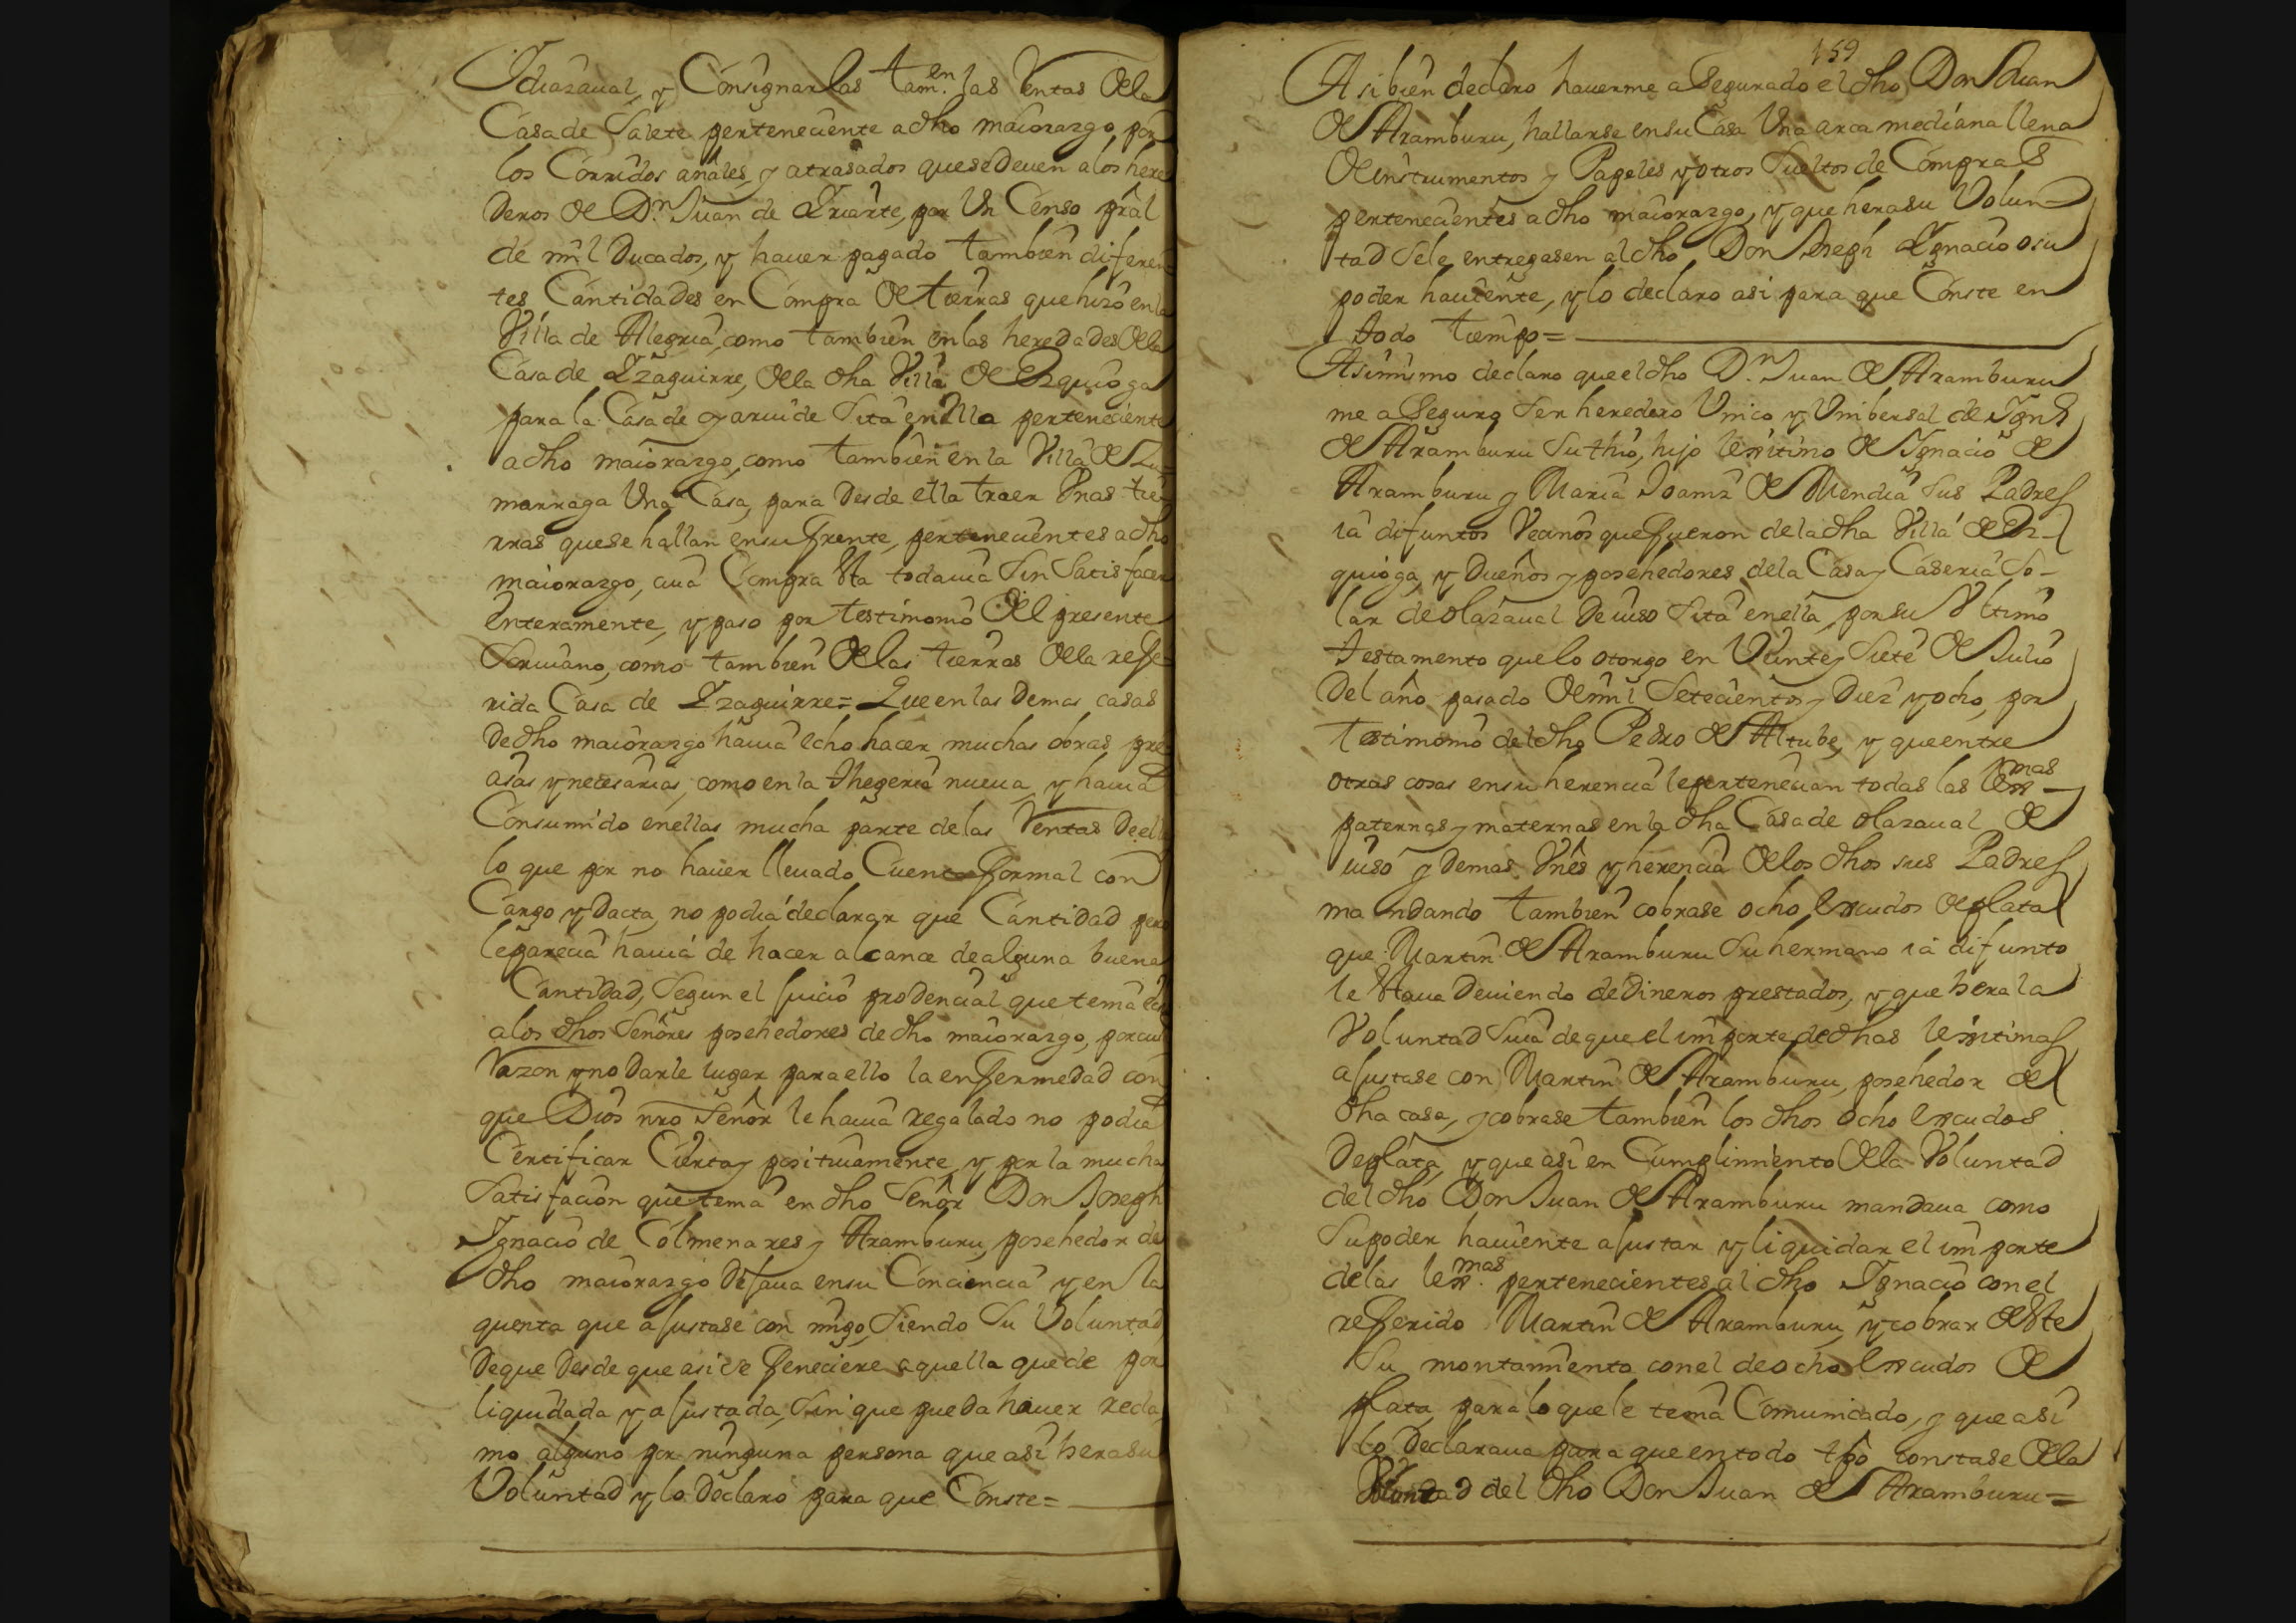 Idiazaual, y Consignarlas tamen. las Rentas de la
Casa de Salete perteneciente a dho maiorazgo, por
los Corridos anales, y atrasados que se deuen a los here
deros de Dn. Juan de Yriarte, por Un Censo pral
de mil Ducados, y hauer pagado tambien diferen=
tes Cantidades en Compra de tierras que hizo en la
Villa de Alegria, como tambien en las heredades de la
Casa de Yzaguirre, de la dha Villa de Ezquioga
para la Casa de sita en ella perteneciente
a dho maiorazgo, como tambien en la Villa de Zu=
marraga Una Casa, para desde ella traer Unas tie=
rras que se hallan en su frente, pertenecientes a dho
maiorazgo, cuia Compra sta todauia sin satisfacer
enteramente, y paso por testimonio del presente
Scriuano, como tambien de las tierras de la refe=
rida Casa de Yzaguirre= Que en las demas casas
de dho maiorazgo hauia echo hacer muchas obras pre
cisas y necesarias, como en la thegeria nueua, y hauia
Consumido en ellas mucha parte de las Rentas de ella
lo que por no hauer lleuado Cuenta formal con
Cargo y Dacta, no podia declarar que Cantidad pero
le parecia hauia de hacer alcance de alguna buena
Cantidad, segun el juicio prodencial que tenia echo
a los dhos Señores posehedores de dho maiorazgo, por cuia
Razon y no darle lugar para ello la enfermedad con
que Dios nro Señor le hauia regalado no podia
Certificar Cierta y positiuamente, y por la mucha
Satisfacion que tenia en dho Señor Don Joseph
Ignacio de Colmenares y Aramburu, posehedor de
dho maiorazgo dejaua en su Conciencia y en la
quenta que ajustase con migo, siendo su Voluntad
de que desde que asi se feneciere aquella quede por
liquidada y ajustada, sin que pueda hauer recla
mo alguno por ninguna persona que asi hera su
Voluntad y lo declaro para que Conste=
159
Asi bien declaro hauerme asegurado el dho Don Juan
de Aramburu, hallarse en su Casa Una arca mediana llena
de instrumentos y Papeles y otros sueltos de Compras
pertenecientes a dho maiorazgo, y que hera su Volun=
tad se le entregasen al dho Don Joseph Ygnacio o su
poder hauiente, y lo declaro asi para que Conste en
todo tiempo=
Asimismo declaro que el dho Dn. Juan de Aramburu
me aseguro ser heredero Unico y Unibersal de Ignº
de Aramburu su thio, hijo lexitimo de Ignacio de
Aramburu y Maria Joanez de Mendia sus Padres
ia difuntos Vecinos que fueron de la dha Villa de Ez-
quioga, y Dueños y posehedores de la Casa y Caseria So-
lar de olazaual de iuso sita en ella, por su Ultimo
testamento que lo otorgo en Veinte y Siete de Julio
del año pasado de mil Setecientos y Diez y ocho, por
testimonio del dho Pedro de Altube, y que entre
otras cosas en su herencia le pertenecian todas las lexmas -
paternas y maternas en la dha Casa de olazaual de
iuso y demas Vnes y herencia de los dhos sus Padres
mandando tambien cobrase ocho escudos de plata
que Martin de Aramburu su hermano ia difunto
le staua deuiendo de dineros prestados, y que hera la
Voluntad suia de que el importe de dhas lexitimas
ajustase con Martin de Aramburu, posehedor de
dha casa, y cobrase tambien los dhos ocho escudos
de plata, y que asi en Cumplimiento de la Voluntad
del dho Don Juan de Aramburu mandaua como
su poder hauiente ajustar y liquidar el importe
de las lexmas. pertenecientes al dho Ignacio con el
referido Martin de Aramburu, y cobrar de ste
su montamiento con el de ocho escudos de
plata, para lo que le tenia Comunicado, y que asi
lo declaraua para que en todo tpo constase de la
Voluntad del dho Don Juan de Aramburu=